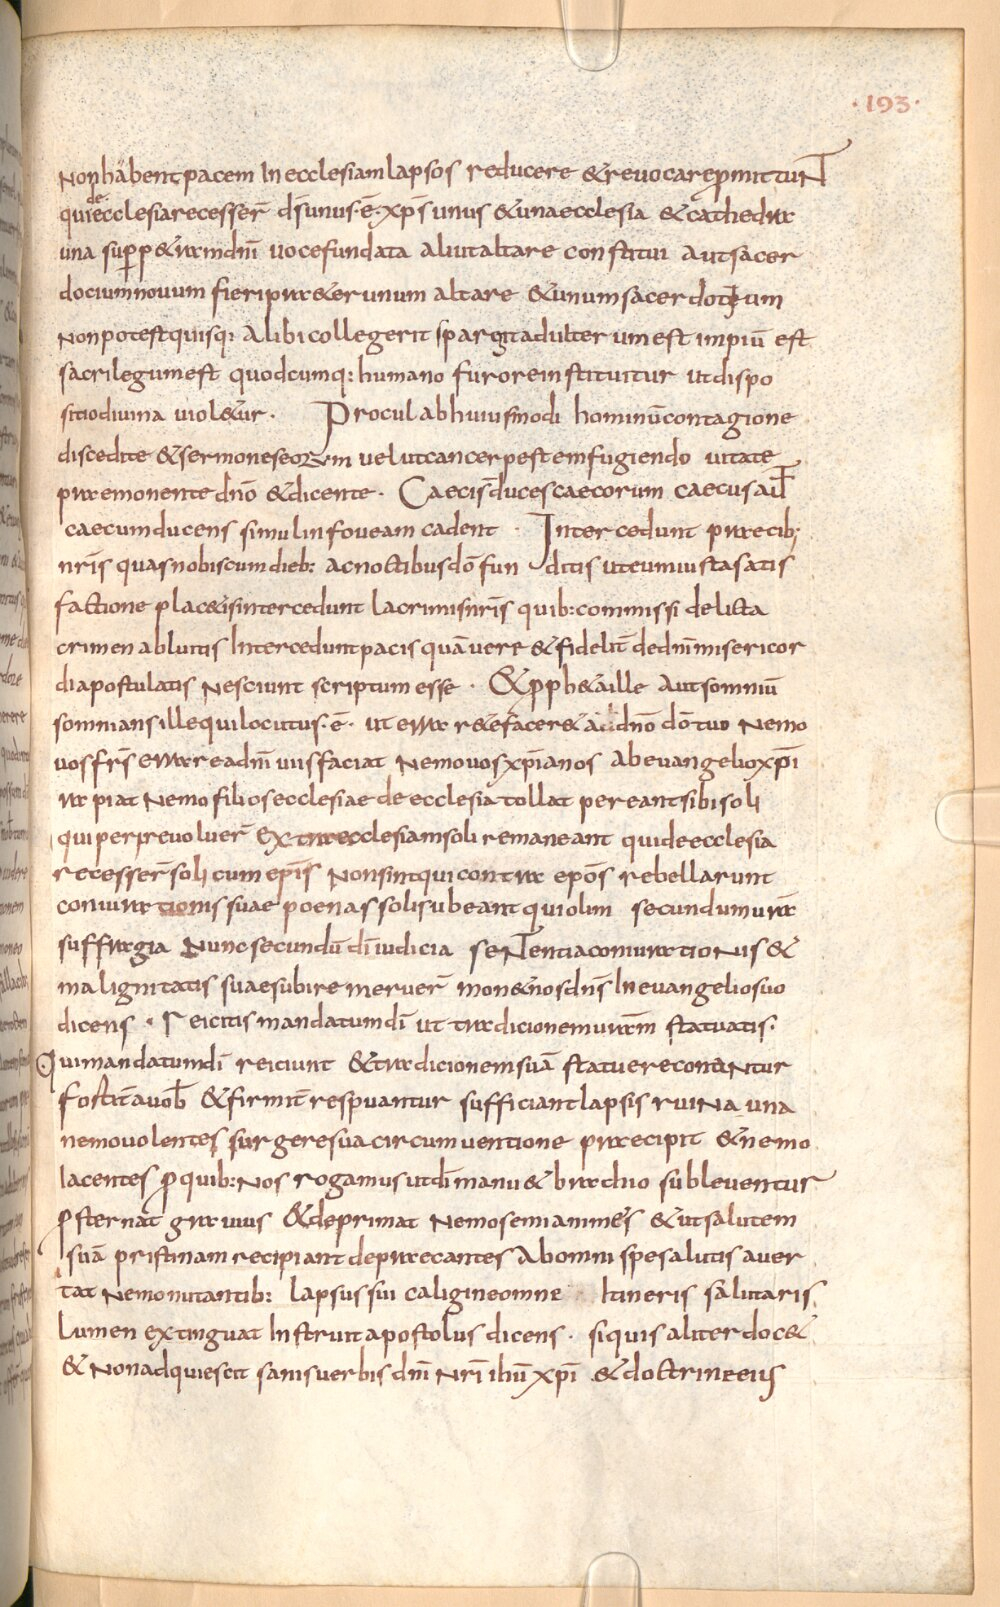 ·193·
non habent pacem In ecclesiam lapsos reducere & reuocare pmittunt
qui de ecclesia recesser̄ d̄s unus ē · xp̄s unus & una ecclesia & cathedra
una sup p&ram dn̄i uoce fundata aliut altare constitui aut sacer
docium nouum fieri praeter unum altare & unum sacerdotium
non potest quisq: alibi collegerit spargit adulterum est impiū est
sacrilegum est quodcumq: humano furore instituitur ut dispo
sitio diuina uiol&ur · Procul ab huiusmodi hominū contagione
discedite & sermones eorum uelut cancer pestem fugiendo uitate
praemonente dn̄o & dicente · Caeci s̄ duces caecorum caecus aut̄
caecum ducens simul in foueam cadent · Intercedunt praecib;
nr̄is quas nobiscum dieb: ac noctibus dō fun ditis ut eum iusta satis
factione plac&is intercedunt lacrimis nr̄is quib: commissi delicta
crimen abluitis Intercedunt pacis quā uere & fidelit̄ de dn̄i misericor
dia postulatis nesciunt scriptum esse · & proph&a ille aut somniū
somnians ille qui locutus · ē · ut errare te faceret a dn̄o dō tuo nemo
uos fr̄s errare a dn̄i uiis faciat nemo uos xp̄ianos ab euangelio xp̄i
rapiat nemo filios ecclesiae de ecclesia tollat pereant sibi soli
qui perire uoluer̄ extra ecclesiam soli remaneant qui de ecclesia
recesser̄ soli cum ep̄is non sint qui contra ep̄os rebellarunt
coniurationis suae poenas soli subeant qui olim secundum ura
suffragia nunc secundū dī iudicia sententia coniurationis &
malignitatis suae subire meruer̄ mon& nos dn̄s In euangelio suo
dicens · reicitis mandatum dī ut tradicionem uram statuatis ·
Qui mandatum dī reiciunt & tradicionem suā statuere conantur
fortit̄ a uob̄ & firmit̄ respuantur sufficiant lapsis ruina una
nemo uolentes surgere sua circumuentione praecipit & nemo
Iacentes p quib: nos rogamus ut dī manu & brachio subleuentur
psternat grauius & deprimat nemo semianimes & ut salutem
suā pristinam recipiant deprecantes ab omni spe salutis auer
tat nemo nutantib: lapsus sui caligine omne Itineris salutaris
Lumen extinguat Instruit apostolus dicens · si quis aliter doc&
& non adquiescit sanis uerbis dn̄i nr̄i ihū xp̄i & doctrine eius